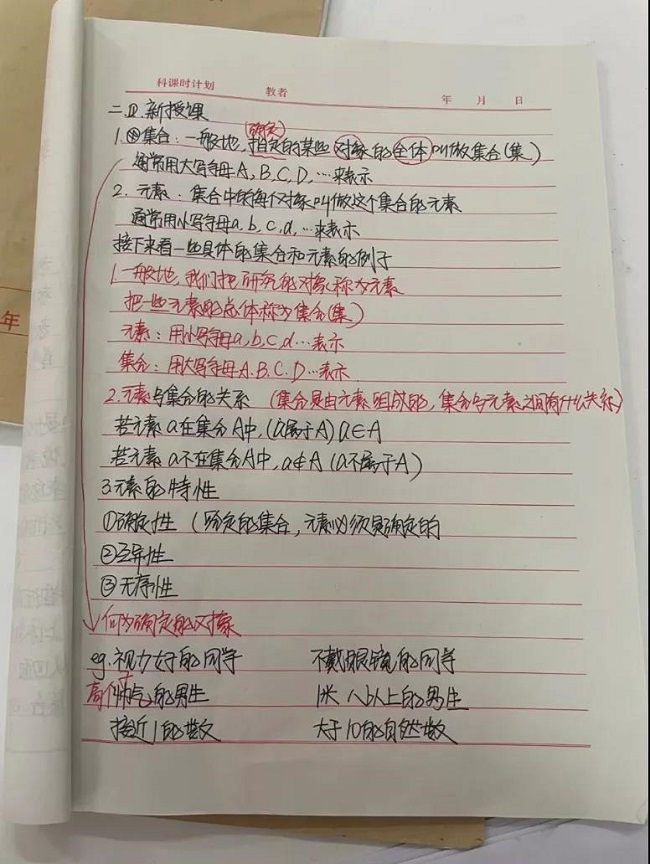 科课时计划 教者 年 月 日
二.新授课
1.集合:一般地,指定的某些对象的全体叫做集合(集)
确定
通常用大写字母A、B、C、D、…来表示
2.元素:集合中的每个对象叫做这个集合的元素
通常用小写字母a、b、c、d、…来表示
接下来看一些具体的集合和元素的例子
1.一般地,我们把研究的对象称为元素
把一些元素的总体称为集合(集)
元素:用小写字母a,b,c,d…表示
集合:用大写字母A.B.C.D…表示
2.元素与集合的关系 (集合是由元素组成的,集合与元素之间有什么关系)
若元素a在集合A中,(a属于A) a∈A
若元素a不在集合A中,a∉A (a不属于A)
3.元素的特性
①确定性 (给定的集合,元素必须是确定的
②互异性
③无序性
何为确定的对象
eg.视力好的同学 不戴眼镜的同学
高个帅气的男生 1米八以上的男生
接近1的数 大于10的自然数
年